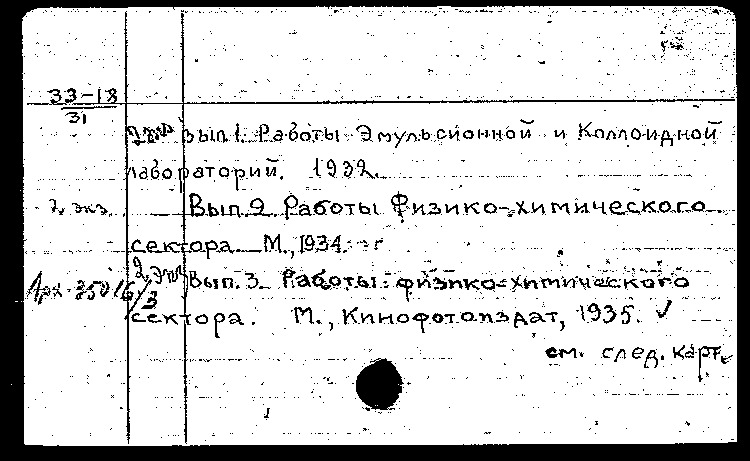 33-18
31
2 экз вып 1. Работы Эмульсионной и Коллоидной
лабораторий. 1932.
2 экз. Вып. 2 Работы Физико-химического
сектора. М., 1934.
2 экз Вып. 3. Работы физико-химического
Арх. 35016/3 сектора. М., Кинофотоиздат, 1935. ✓
см. след. карт.